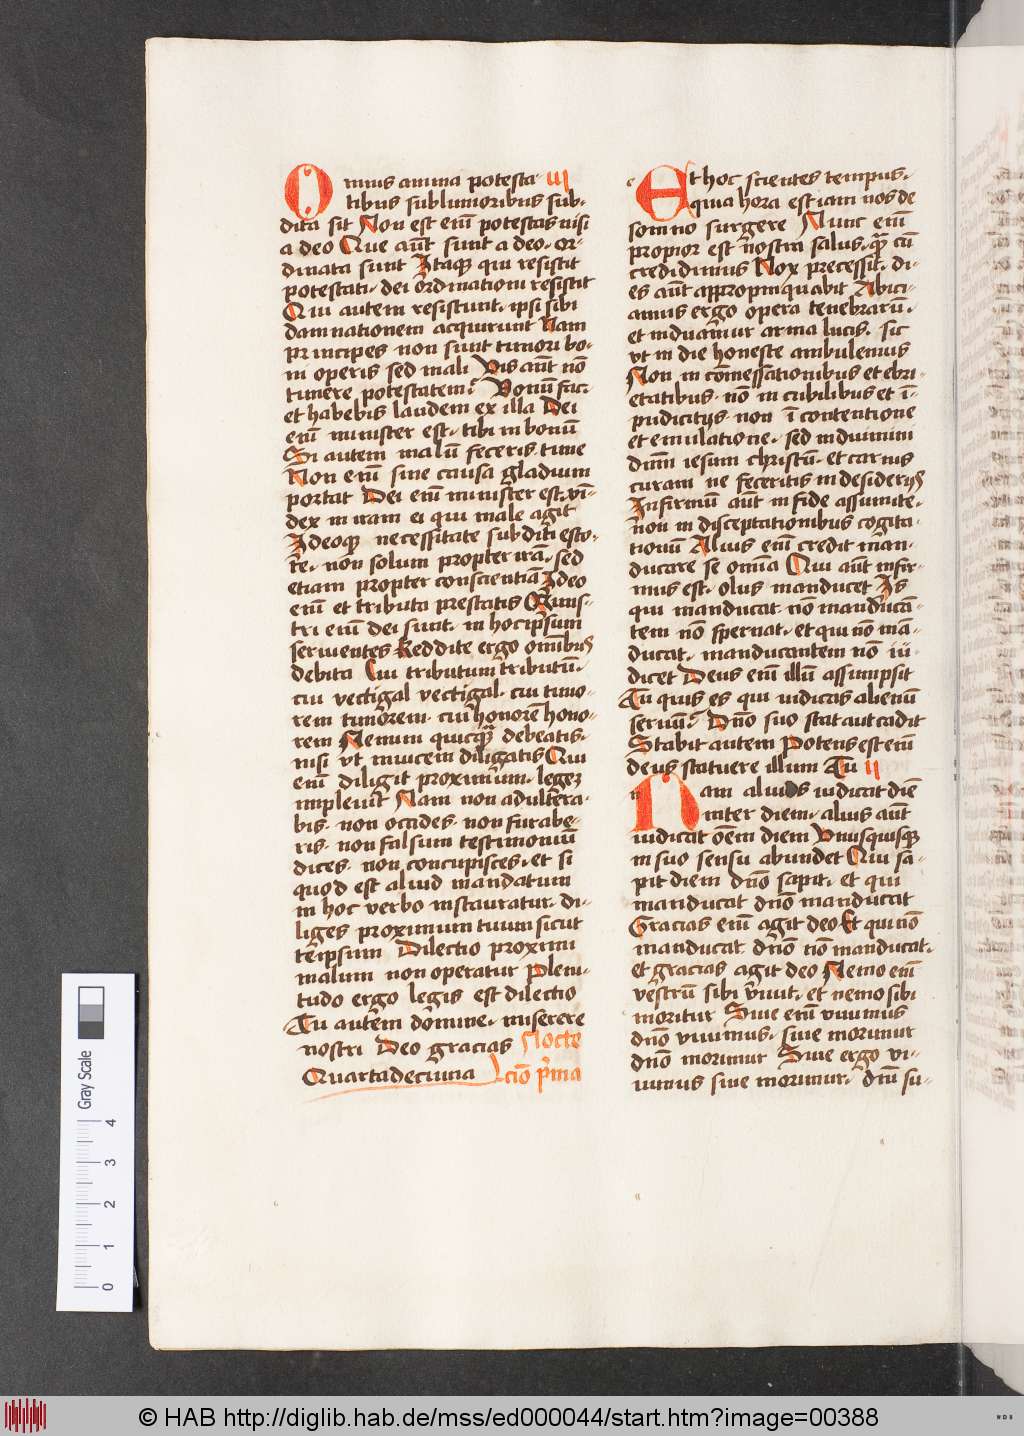 Omnis anima potesta- III
tibus sublimioribus sub-
dita sit Non est enī potestas nisi
a deo Que aūt sunt a deo. or-
dinata sunt Itaqꝫ qui resistit
potestati. dei ordinationi resistit
Qui autem resistunt. ipsi sibi
damnationem acquirunt Nam
principes non sunt timori bo-
ni operis sed mali Vis aūt nō
timere potestatem? Bonū fac:
et habebis laudem ex illa Dei
enī minister est. tibi in bonū
Si autem malū feceris time
Non enī sine causa gladium
portat Dei enī minister est. vī-
dex in iram ei qui male agit
Ideoqꝫ necessitate subditi esto-
te. non solum propter irā. sed
etiam propter conscientiā Ideo
enī et tributa prestatis Minis-
tri enī dei sunt. in hoc ipsum
seruientes Reddite ergo omnibꝰ
debita Cui tributum tributū.
cui vectigal vectigal. cui timo-
rem timorem. cui honorē hono-
rem Nemini quicqᷓ debeatis.
nisi vt inuicem diligatis Qui
enī diligit proximum. legeꝫ
impleuit Nam non adultera-
bis. non occides. non furabe-
ris. non falsum testimoniū
dices. non concupisces. et si
quod est aliud mandatum
in hoc verbo instauratur. di-
liges proximum tuum sicut
teipsum Dilectio proximi
malum non operatur Pleni-
tudo ergo legis est dilectio
Tu autem domine. miserere
nostri Deo gracias Nocte
Quartadecima Lcio pͥma
Et hoc scientes tempus.
quia hora est iam nos de
somno surgere Nunc enī
propior est nostra salus. qᷓ cū
credidimus Nox precessit. di-
es aūt appropinquabit Abici-
amus ergo opera tenebrarū.
et induamur arma lucis. sic
vt in die honeste ambulemus
Non in cōmessationibus et ebri-
etatibus. nō in cubilibus et ī-
pudicitijs non ī contentione
et emulatione. sed induimini
dnm iesum christū. et carnis
curam ne feceritis in desiderijs
Infirmū aūt in fide assumite.
non in disceptationibus cogita-
tionū Alius enī credit man-
ducare se omnia Qui aūt infir-
mus est. olus manducet Is
qui manducat. nō manducā-
tem nō spernat. et qui nō mā-
ducat. manducantem nō iu-
dicet Deus enī illū assumpsit
Tu quis es qui iudicas alienū
seruū? Dnō suo stat aut cadit
Stabit autem Potens est enī
deus statuere illum Tu II
Nam alius iudicat diē
inter diem. alius aūt
iudicat oēm diem Vnusquisqꝫ
in suo sensu abundet Qui sa-
pit diem dnō sapit. et qui
manducat dnō manducat
Gracias enī agit deo Et qui nō
manducat dnō nō manducat.
et gracias agit deo Nemo enī
vestrū sibi viuit. et nemo sibi
moritur Siue enī viuimus
dnō viuimus. siue morimur
dnō morimur Siue ergo vi-
uimus siue morimur. dnī su-
Gray Scale
0 1 2 3 4
© HAB http://diglib.hab.de/mss/ed000044/start.htm?image=00388